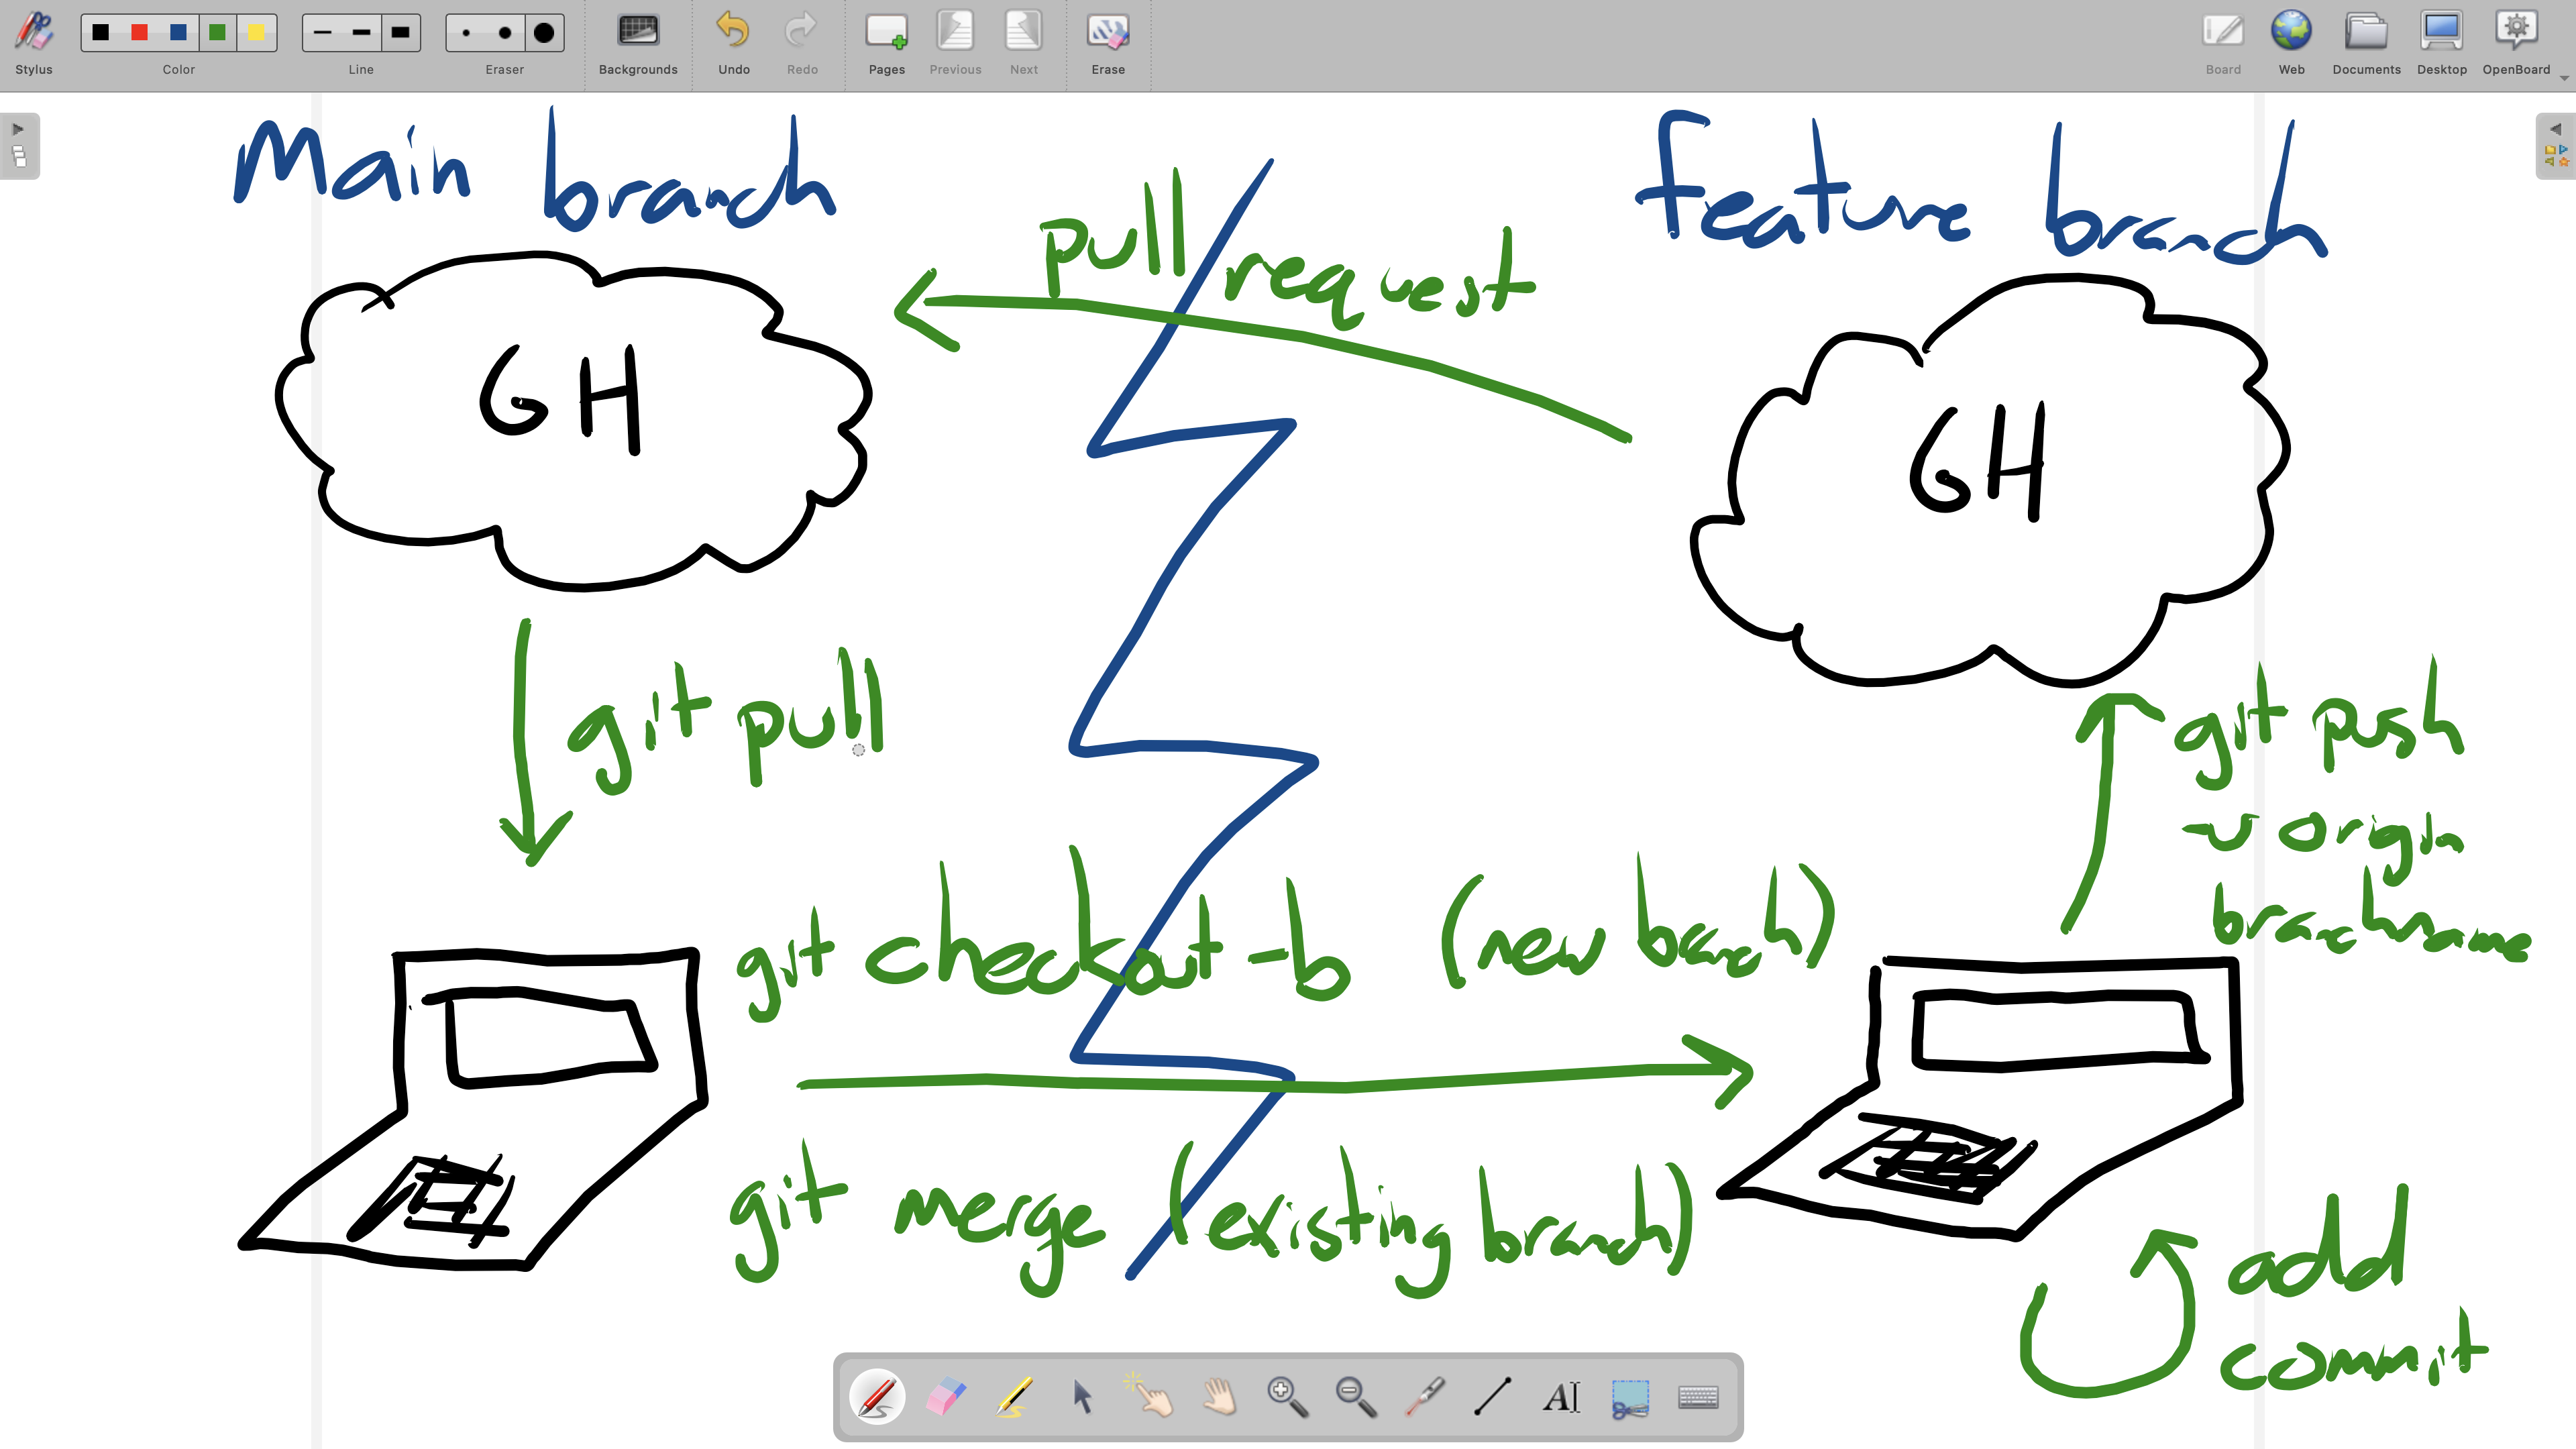 Stylus
Color
Line
Eraser
Backgrounds
Undo
Redo
Pages
Previous
Next
Erase
Board
Web
Documents
Desktop
OpenBoard
Main branch
feature branch
pull request
GH
GH
git pull
git push
-u origin
branchname
git checkout -b (new branch)
git merge (existing branch)
add
commit